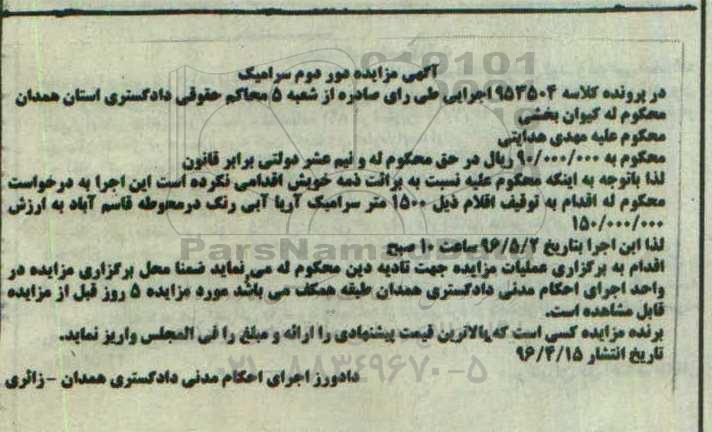 آگهی مزایده دور دوم سرامیک
در پرونده کلاسه ۹۵۳۵۰۴ اجرایی طی رای صادره از شعبه ۵ محاکم حقوقی دادگستری استان همدان
محکوم له کیوان بخشی
محکوم علیه مهدی هدایتی
محکوم به ۹۰/۰۰۰/۰۰۰ ریال در حق محکوم له و نیم عشر دولتی برابر قانون
لذا باتوجه به اینکه محکوم علیه نسبت به برائت ذمه خویش اقدامی نکرده است این اجرا به درخواست
محکوم له اقدام به توقیف اقلام ذیل ۱۵۰۰ متر سرامیک آریا آبی رنگ درمحوطه قاسم آباد به ارزش
۱۵۰/۰۰۰/۰۰۰
لذا این اجرا بتاریخ ۹۶/۵/۲ ساعت ۱۰ صبح
اقدام به برگزاری عملیات مزایده جهت تادیه دین محکوم له می نماید ضمنا محل برگزاری مزایده در
واحد اجرای احکام مدنی دادگستری همدان طبقه همکف می باشد مورد مزایده ۵ روز قبل از مزایده
قابل مشاهده است.
برنده مزایده کسی است که بالاترین قیمت پیشنهادی را ارائه و مبلغ را فی المجلس واریز نماید.
تاریخ انتشار ۹۶/۴/۱۵
دادورز اجرای احکام مدنی دادگستری همدان - زائری
ParsNamadData
۰۲۱-۸۸۳۴۹۶۷۰-۵